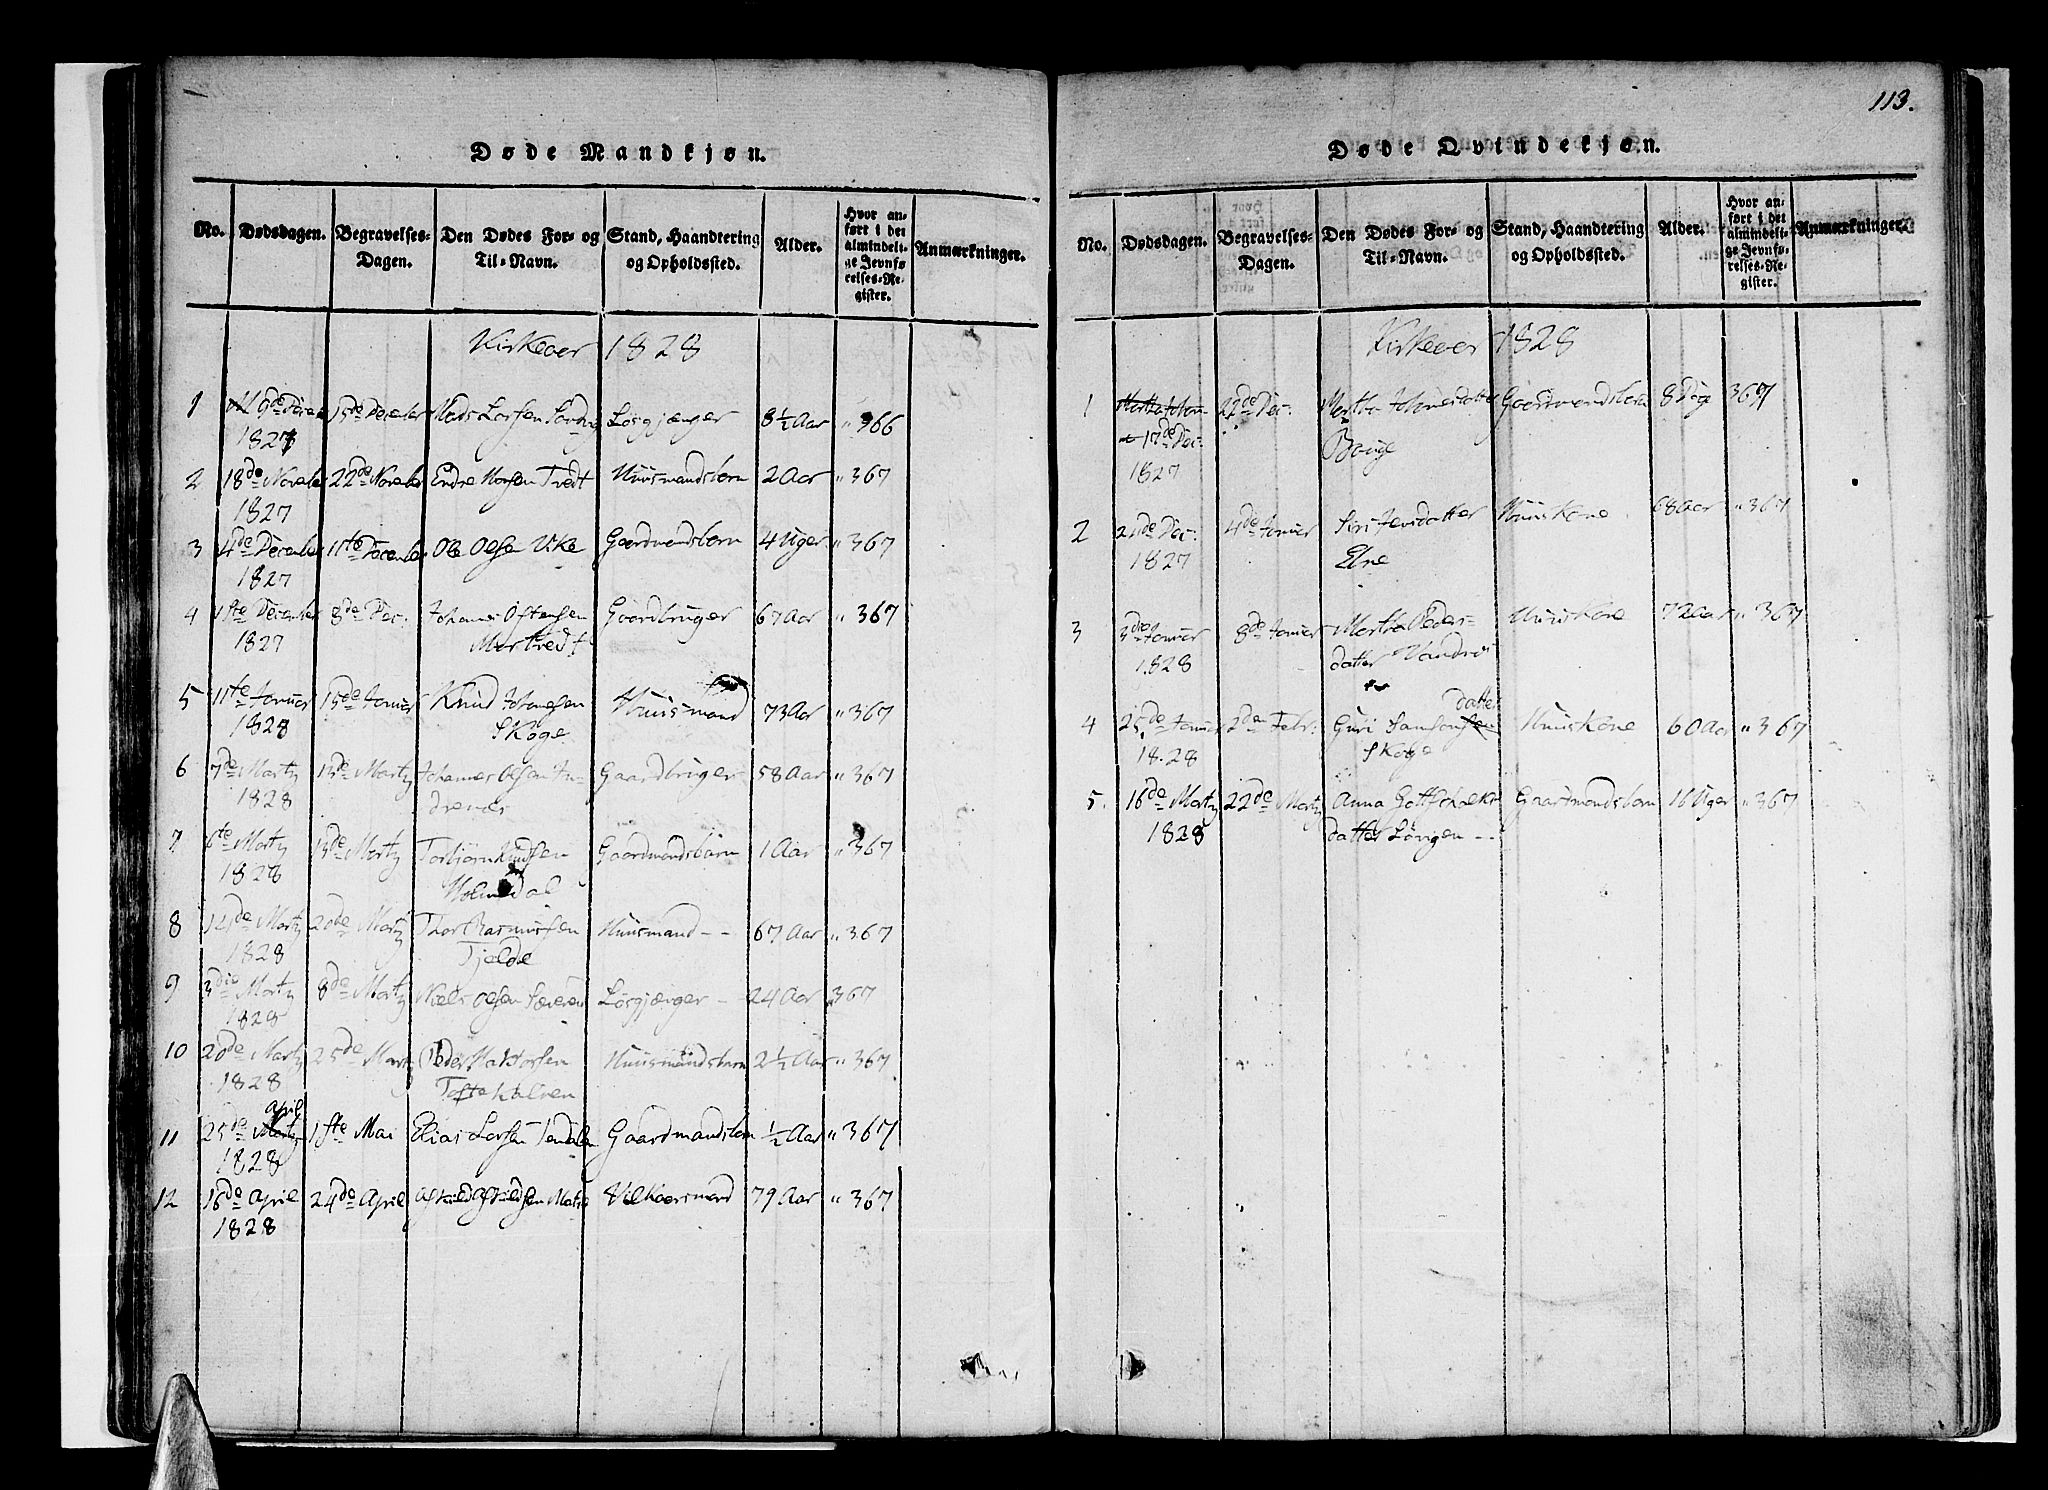 113.
Døde Mandkjøn.
No. Dødsdagen. Begravelses-Dagen. Den Dødes For- og Til-Navn. Stand, Haandtering og Opholdssted. Alder. Hvor anført i det almindelige Jevnførelses-Register. Anmærkninger.
Kirkeaar 1828
1 9de Decem 15de December Mads Larsen Løsgjænger 8½ Aar " 366
1827
2 18de Novembr 22de Novembr Endre Monsen Tvedt Huusmandsbarn 2 Aar " 367
1827
3 4de December 11te December Ole Olsen Vike Gaardmandsbarn 4 Uger " 367
1827
4 1ste December 8de Dec: Johannes Ostensen Gaardbruger 67 Aar " 367
1827 Mortvedt
5 11te Januar 15de Januar Knud Johanesen Huusmand 73 Aar " 367
1828 Skoge
6 7de Martz 13de Martz Johannes Olsen In- Gaardbruger 58 Aar " 367
1828 drenæs
7 6te Martz 13de Martz Torbjørn Knudsen Gaardmandsbarn 1 Aar " 367
1828 Holmedal
8 14de Martz 20de Martz Thor Rasmussen Huusmand - - 67 Aar " 367
1828 Tjelde
9 3die Martz 8de Martz Niels Olsen Løsgjænger - 24 Aar 367
1828
10 20de Martz 25de Martz Peder Huusmandsbarn 2½ Aar " 367
1828 Toftekalven
11 25de April 1ste Mai Elias Larsen Gaardmandsbarn ½ Aar " 367
1828
12 16de April 24de April Askild Askildsen Matre Vilkaarsmand 79 Aar " 367
1828
Døde Qvindekjøn.
No. Dødsdagen. Begravelses-Dagen. Den Dødes For- og Til-Navn. Stand, Haandtering og Opholdssted. Alder. Hvor anført i det almindelige Jevnførelses-Register. Anmærkninger.
Kirkeaar 1828
1 22de Dec: Martha Johanesdatter Gaardmandsbarn 8 Dage 367
17de Dec: Bouge
1827
2 24de Dec: 4de Januar Siri Jensdatter Huuskone 68 Aar " 367
1827 Elne
3 3die Januar 8de Januar Martha Peders- Huuskone 72 Aar " 367
1828 datter
datter
4 25de Januar 2den Febr: Guri Samsonsen Huuskone 60 Aar " 367
1828 Skoge
5. 16de Martz 22de Martz Anna Gottschalks Gaardmandsbarn 16 Uger " 367
1828 datter Løvigen - -